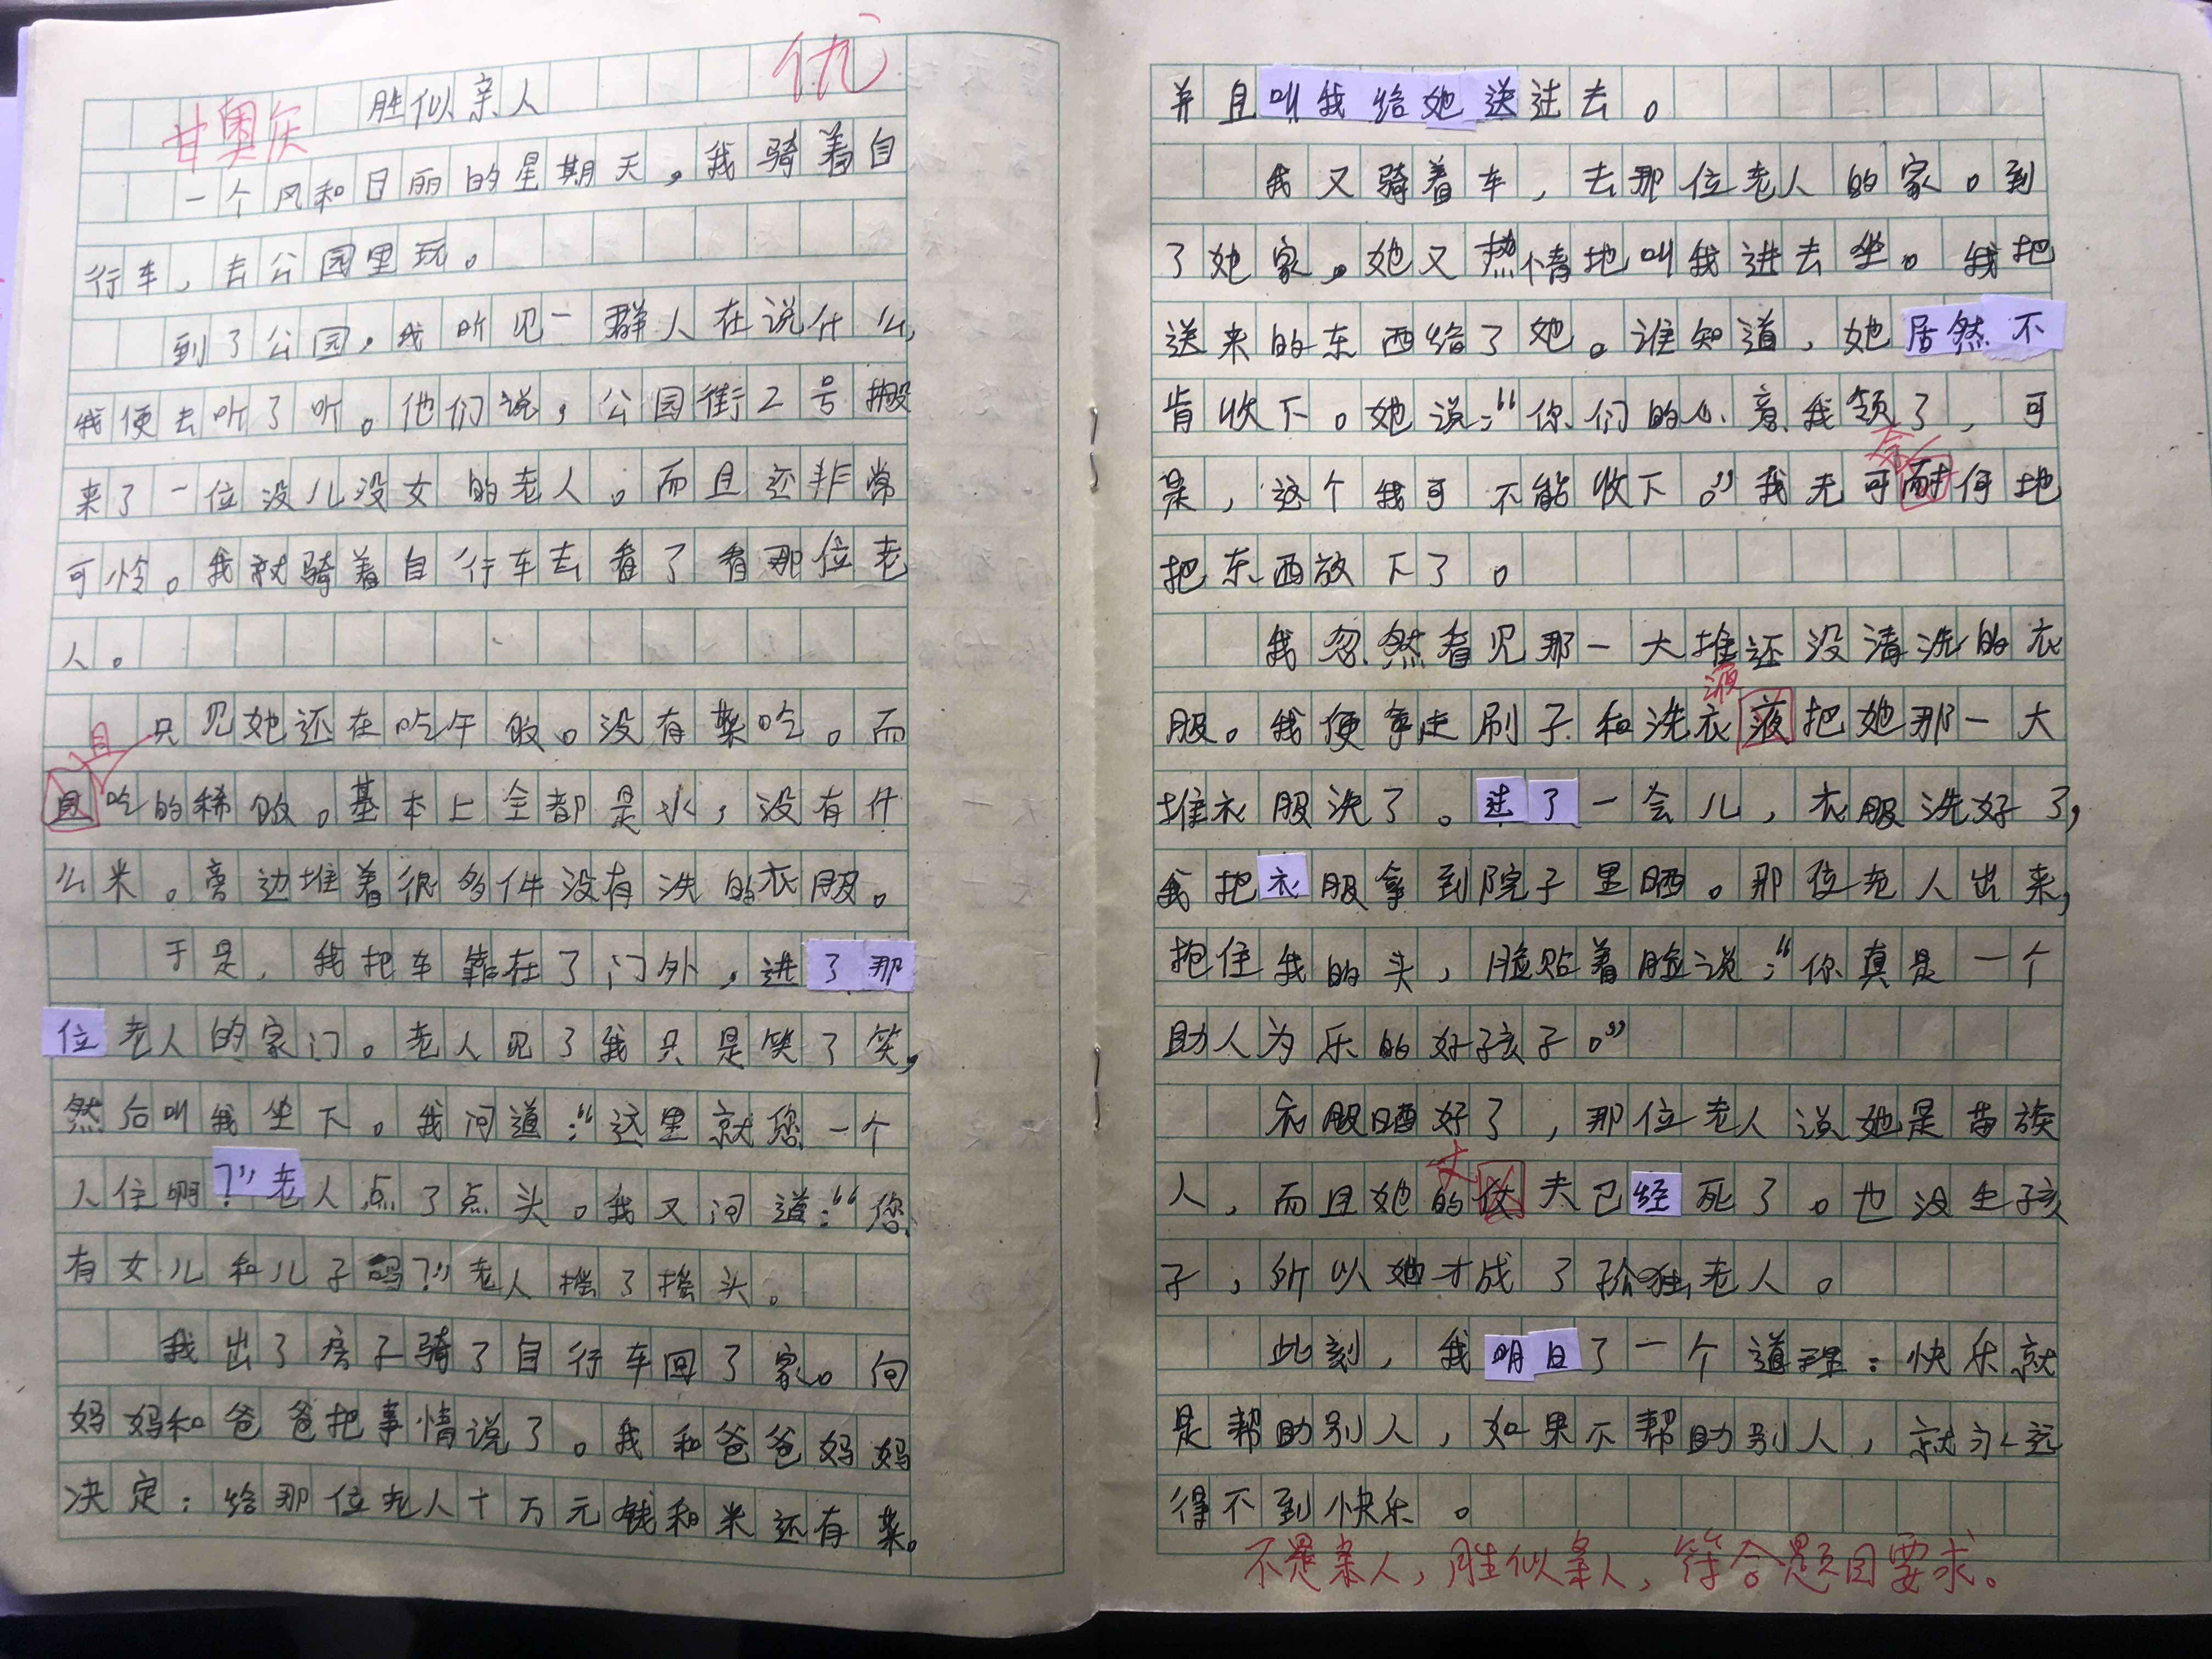 优
胜似亲人
甘奥庆
一个风和日丽的星期天，我骑着自
行车，去公园里玩。
到了公园，我听见一群人在说什么，
我便去听了听。他们说，公园街2号搬
来了一位没儿没女的老人。而且还非常
可怜。我就骑着自行车去看了看那位老
人。
只见她还在吃午饭。没有菜吃。而
且
且吃的稀饭。基本上全都是水，没有什
么米。旁边堆着很多件没有洗的衣服。
于是，我把车靠在了门外，进了那
位老人的家门。老人见了我只是笑了笑，
然后叫我坐下。我问道：“这里就您一个
人住啊？”老人点了点头。我又问道：“您
有女儿和儿子吗？”老人摇了摇头。
我出了房子骑了自行车回了家。向
妈妈和爸爸把事情说了。我和爸爸妈妈
决定：给那位老人十万元钱和米还有菜。
并且叫我给她送过去。
我又骑着车，去那位老人的家。到
了她家。她又热情地叫我进去坐。我把
送来的东西给了她。谁知道，她居然不
肯收下。她说：“你们的心意我领了，可
奈
是，这个我可不能收下。”我无可耐何地
把东西放下了。
我忽然看见那一大堆还没清洗的衣
液
服。我便拿走刷子和洗衣液把她那一大
堆衣服洗了。过了一会儿，衣服洗好了，
我把衣服拿到院子里晒。那位老人出来，
抱住我的头，脸贴着脸说：“你真是一个
助人为乐的好孩子。”
衣服晒好了，那位老人说她是苗族
丈
人，而且她的仗夫已经死了。也没生孩
子，所以她才成了孤独老人。
此刻，我明白了一个道理：快乐就
是帮助别人，如果不帮助别人，就永远
得不到快乐。
不是亲人，胜似亲人，符合题目要求。